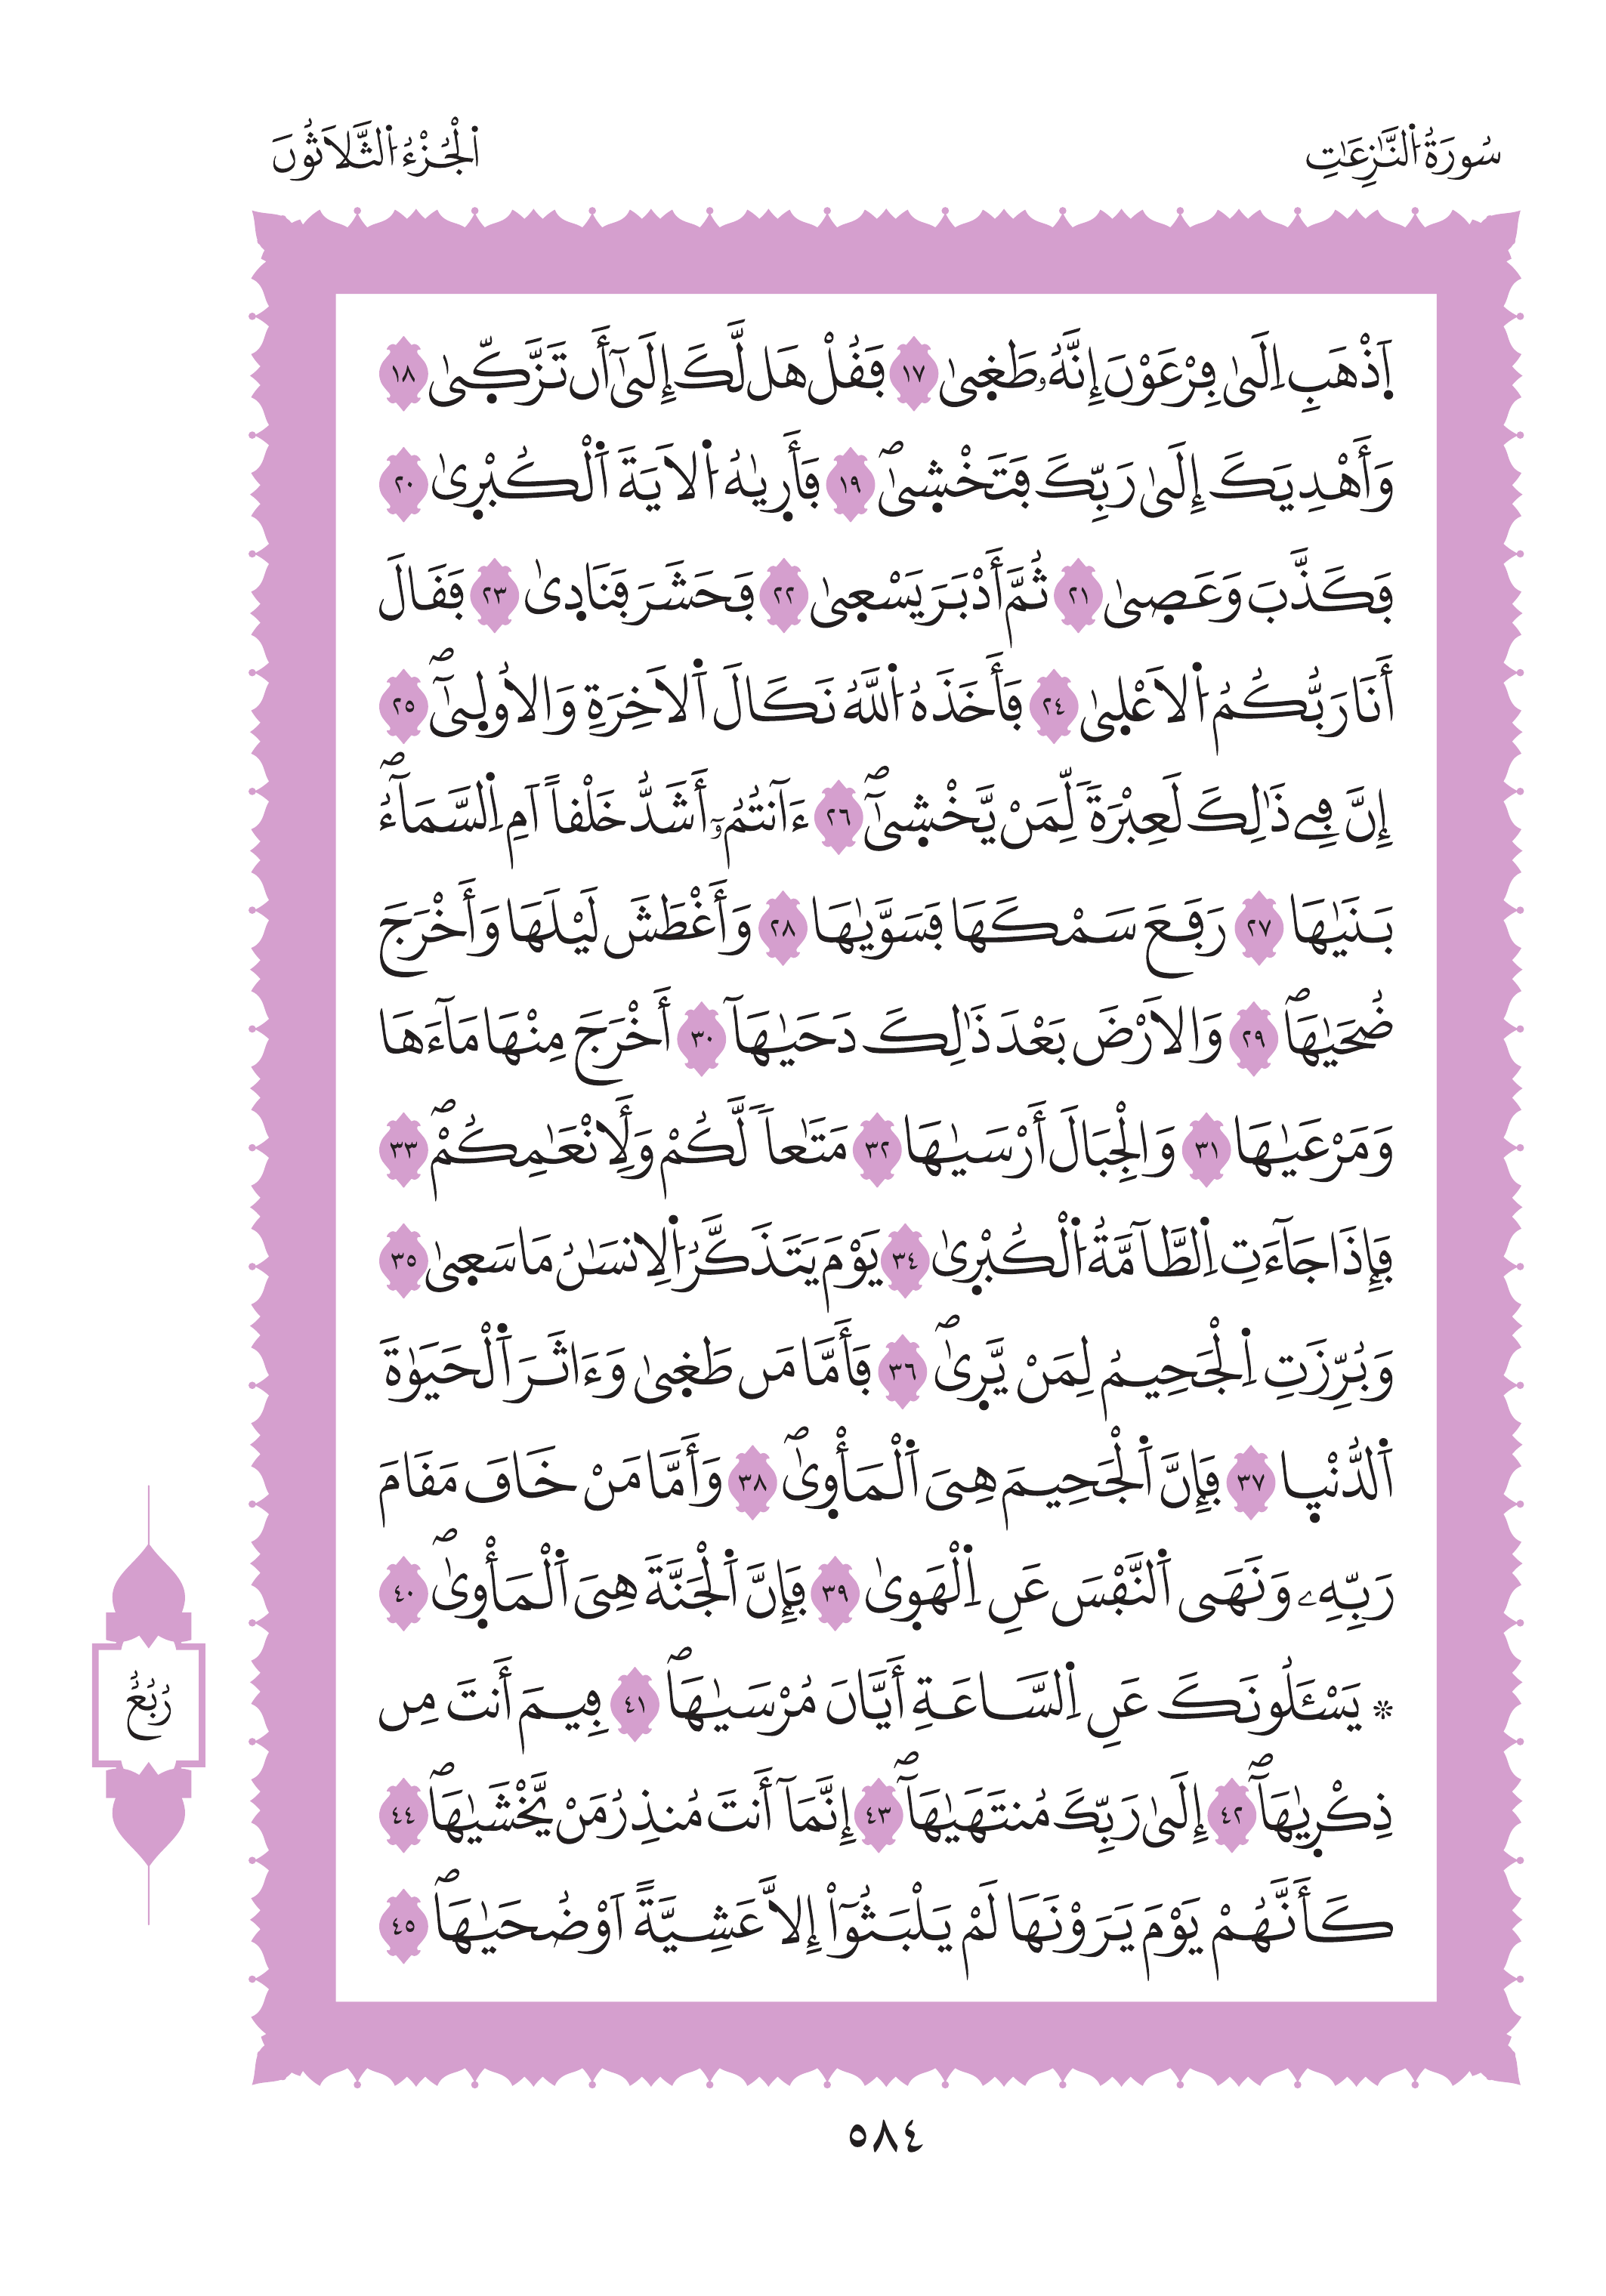 سُورَةُ اُ۬لنَّٰزِعَٰتِ
اُ۬لْجُزْءُ اُ۬لثَّلَاثُونَ
اَ۪ذْهَبِ اِلَىٰ فِرْعَوْنَ إِنَّهُۥ طَغ۪ىٰ ١٧ فَقُلْ هَل لَّكَ إِلَىٰٓ أَن تَزَّكّ۪ىٰ ١٨
وَأَهْدِيَكَ إِلَىٰ رَبِّكَ فَتَخْش۪ىٰۖ ١٩ فَأَر۪يٰهُ اُ۬لَايَةَ اَ۬لْكُبْر۪ىٰ ٢٠
فَكَذَّبَ وَعَص۪ىٰ ٢١ ثُمَّ أَدْبَرَ يَسْع۪ىٰ ٢٢ فَحَشَرَ فَنَاد۪ىٰ ٢٣ فَقَالَ
أَنَا رَبُّكُمُ اُ۬لَاعْل۪ىٰ ٢٤ فَأَخَذَهُ اُ۬للَّهُ نَكَالَ اَ۬لَاخِرَةِ وَالُاول۪ىٰٓۖ ٢٥
إِنَّ فِے ذَٰلِكَ لَعِبْرَةٗ لِّمَنْ يَّخْش۪ىٰٓۖ ٢٦ ءَآنتُمُۥٓ أَشَدُّ خَلْقاً اَمِ اِ۬لسَّمَآءُۖ
بَنَيٰهَا ٢٧ رَفَعَ سَمْكَهَا فَسَوَّيٰهَا ٢٨ وَأَغْطَشَ لَيْلَهَا وَأَخْرَجَ
ضُحَيٰهَاۖ ٢٩ وَالَارْضَ بَعْدَ ذَٰلِكَ دَحَيٰهَآ ٣٠ أَخْرَجَ مِنْهَا مَآءَهَا
وَمَرْعَيٰهَا ٣١ وَالْجِبَالَ أَرْسَيٰهَا ٣٢ مَتَٰعاٗ لَّكُمْ وَلِأَنْعَٰمِكُمْۖ ٣٣
فَإِذَا جَآءَتِ اِ۬لطَّآمَّةُ اُ۬لْكُبْر۪ىٰ ٣٤ يَوْمَ يَتَذَكَّرُ اُ۬لِانسَٰنُ مَا سَع۪ىٰ ٣٥
وَبُرِّزَتِ اِ۬لْجَحِيمُ لِمَنْ يَّر۪ىٰۖ ٣٦ فَأَمَّا مَن طَغ۪ىٰ وَءَاثَرَ اَ۬لْحَيَوٰةَ
اَ۬لدُّنْي۪ا ٣٧ فَإِنَّ اَ۬لْجَحِيمَ هِىَ اَ۬لْمَأْو۪ىٰۖ ٣٨ وَأَمَّا مَنْ خَافَ مَقَامَ
رَبِّهِۦ وَنَهَى اَ۬لنَّفْسَ عَنِ اِ۬لْهَو۪ىٰ ٣٩ فَإِنَّ اَ۬لْجَنَّةَ هِىَ اَ۬لْمَأْو۪ىٰۖ ٤٠
۞ يَسْـَٔلُونَكَ عَنِ اِ۬لسَّاعَةِ أَيَّانَ مُرْسَيٰهَاۖ ٤١ فِيمَ أَنتَ مِن
ذِكْر۪يٰهَآۖ ٤٢ إِلَىٰ رَبِّكَ مُنتَهَيٰهَآۖ ٤٣ إِنَّمَآ أَنتَ مُنذِرُ مَنْ يَّخْشَيٰهَاۖ ٤٤
كَأَنَّهُمْ يَوْمَ يَرَوْنَهَا لَمْ يَلْبَثُوٓاْ إِلَّا عَشِيَّةً اَوْ ضُحَيٰهَاۖ ٤٥
رُبُعُ
٥٨٤